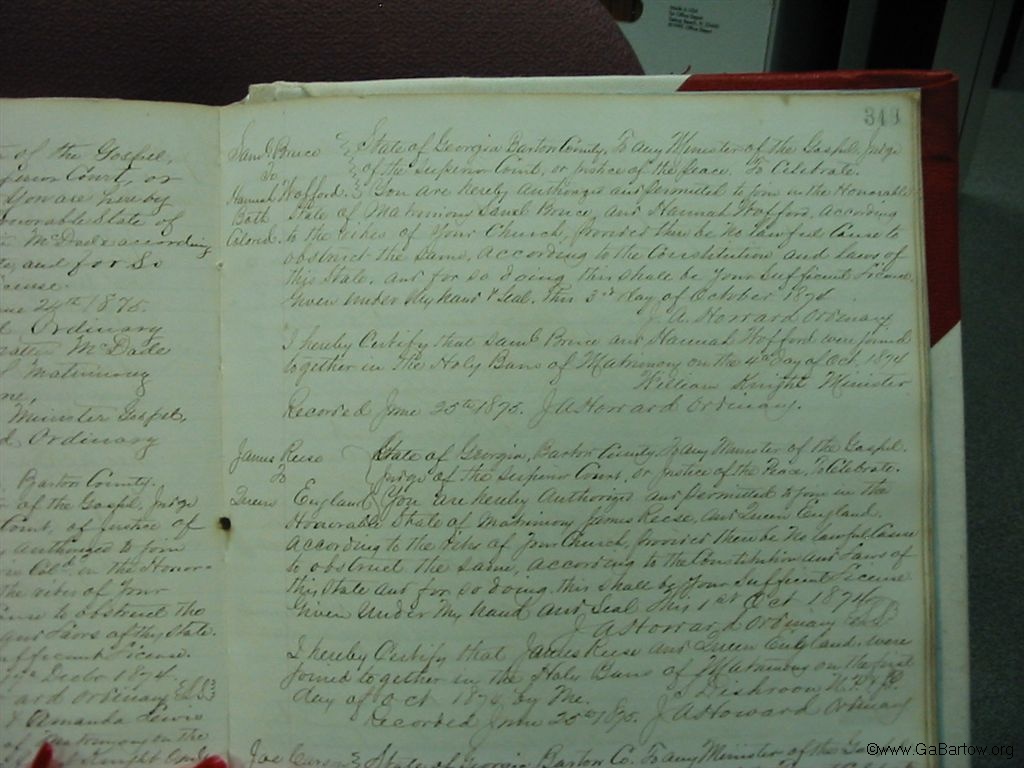 Made in USA
349
of the Gospel,
Court, or
You are hereby
Honorable State of
McDade according
and for So
License.
24th 1875.
Ordinary
McDade
Matrimony
Minister Gospel,
Ordinary
Bartow County.
of the Gospel, Judge
Court, or Justice of
authorized to join
Col^d. in the Honor-
the rites of Your
to obstruct the
and Laws of this State.
Sufficient License.
Decbr 1874.
Ordinary
& Amanda Lewis
of Matrimony on the
Saml Bruce
To
Hannah Wofford.
Both
Colored.
State of Georgia Bartow County, To any Minister of the Gospel, Judge
of the Superior Court, or Justice of the Peace, To Celebrate.
You are hereby authorized and permitted to join in the Honorable
State of Matrimony Saml Bruce, and Hannah Wofford, according
to the rites of Your Church, provided there be no lawful Cause to
obstruct the same, according to the Constitution and Laws of
this State, and for so doing this shall be Your Sufficient License.
Given under My hand & Seal, this 3rd day of October 1874
J. A. Howard Ordinary
I hereby Certify that Saml Bruce and Hannah Wofford were joined
together in the Holy Bans of Matrimony on the 4th day of Oct. 1874
William Knight Minister
Recorded June 25th 1875. J A Howard Ordinary.
James Reese
To
Queen England
State of Georgia, Bartow County. To any Minister of the Gospel.
Judge of the Superior Court, or Justice of the Peace, to Celebrate.
You are hereby Authorized and permitted to join in the
Honorable State of Matrimony James Reese, and Queen England.
according to the rites of Your Church, provided there be no lawful Cause
to obstruct the same, according to the Constitution and Laws of
this State and for so doing, this shall be Your Sufficient License
Given Under My hand and Seal this 1st Oct 1874
J A Howard Ordinary
I hereby Certify that James Reese and Queen England, were
joined together in the Holy Bans of Matrimony on the first
day of Oct 1874 by Me.
Recorded June 25th 1875. J A Howard Ordinary
State of Georgia Bartow Co. To any Minister of the Gospel
©www.GaBartow.org